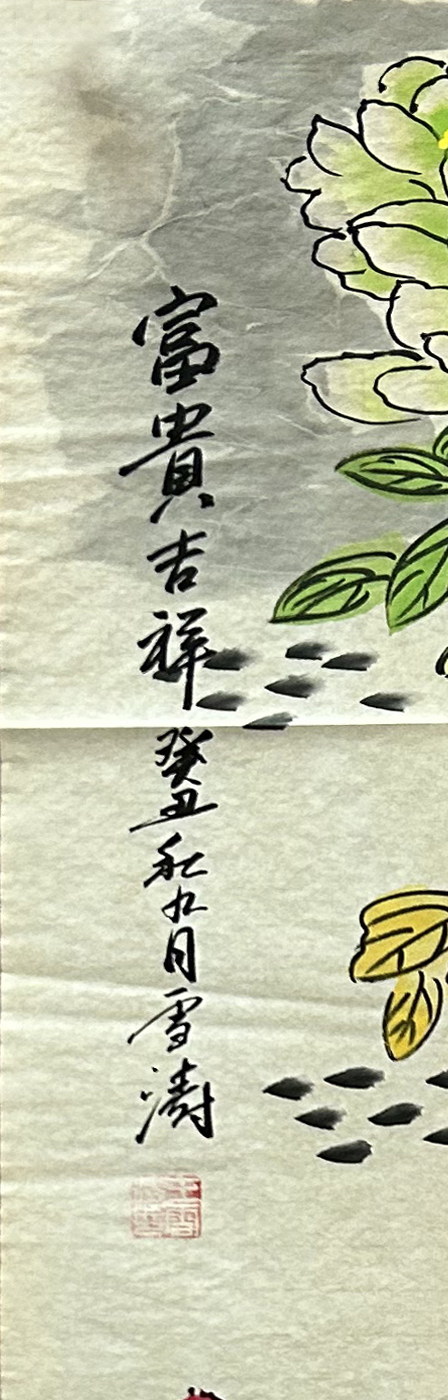 富貴吉祥癸丑秋九月雪濤